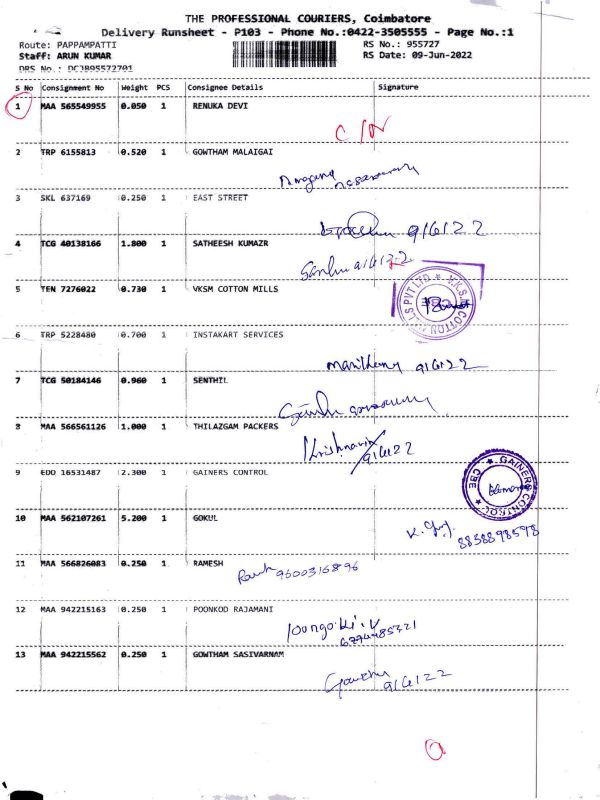 THE PROFESSIONAL COURIERS, Coimbatore
Delivery Runsheet - P103 - Phone No.:0422-3505555 - Page No.:1
Route: PAPPAMPATTI RS No.: 955727
Staff: ARUN KUMAR RS Date: 09-Jun-2022
DRS No.: DCJB95572701
S No Consignment No Weight PCS Consignee Details Signature
1 MAA 565549955 0.050 1 RENUKA DEVI
C/N
2 TRP 6155813 0.520 1 GOWTHAM MALAIGAI
3 SKL 637169 0.250 1 EAST STREET
9/6/22
4 TCG 40138166 1.800 1 SATHEESH KUMAZR
9/6/22
5 TEN 7276022 0.730 1 VKSM COTTON MILLS
6 TRP 5228480 0.700 1 INSTAKART SERVICES
9/6/22
7 TCG 50184146 0.960 1 SENTHIL
8 MAA 566561126 1.000 1 THILAZGAM PACKERS
9/6/22
9 EDO 16531487 2.300 1 GAINERS CONTROL
GAINERS CONTROL CBE
10 MAA 562107261 5.200 1 GOKUL
8838898598
11 MAA 566826083 0.250 1 RAMESH
9600316896
12 MAA 942215163 0.250 1 POONKOD RAJAMANI
13 MAA 942215562 0.250 1 GOWTHAM SASIVARNAM
9/6/22